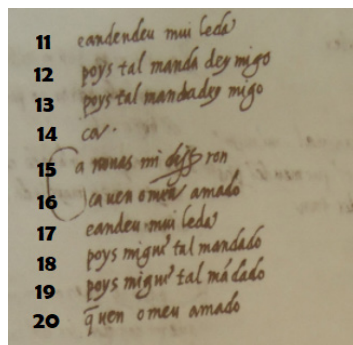 11 eandendeu mui leda
12 poys tal manda dey migo
13 poys tal mandadey migo
14 ca.
15 a nouas mi diss ron
16 ca uen omeu amado
17 eandeu mui leda
18 poys migu' tal mandado
19 poys migu' tal mādado
20 q̄ uen o meu amado